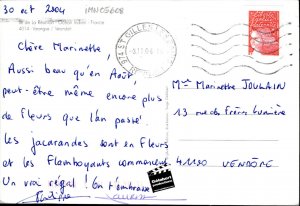 30 oct 2004
IMN05608
Ile de La Réunion - Océan Indien - France
Chère Marinette,
Aussi beau qu'en Août,
peut-être même encore plus
de fleurs que l'an passé.
les jacarandas sont en fleurs
et les Flamboyants commencent.
Un vrai régal ! On t'embrasse
Mme Marinette JOULAIN
13 rue des Frères Lumière
41100 VENDÔME